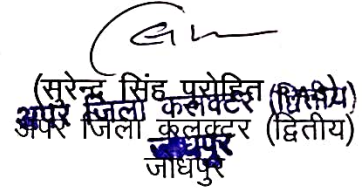 (सुरेन्द्र सिंह पुरोहित
अपर जिला कलक्टर (द्वितीय)
अपर जिला कलक्टर (द्वितीय)
जोधपुर
जोधपुर